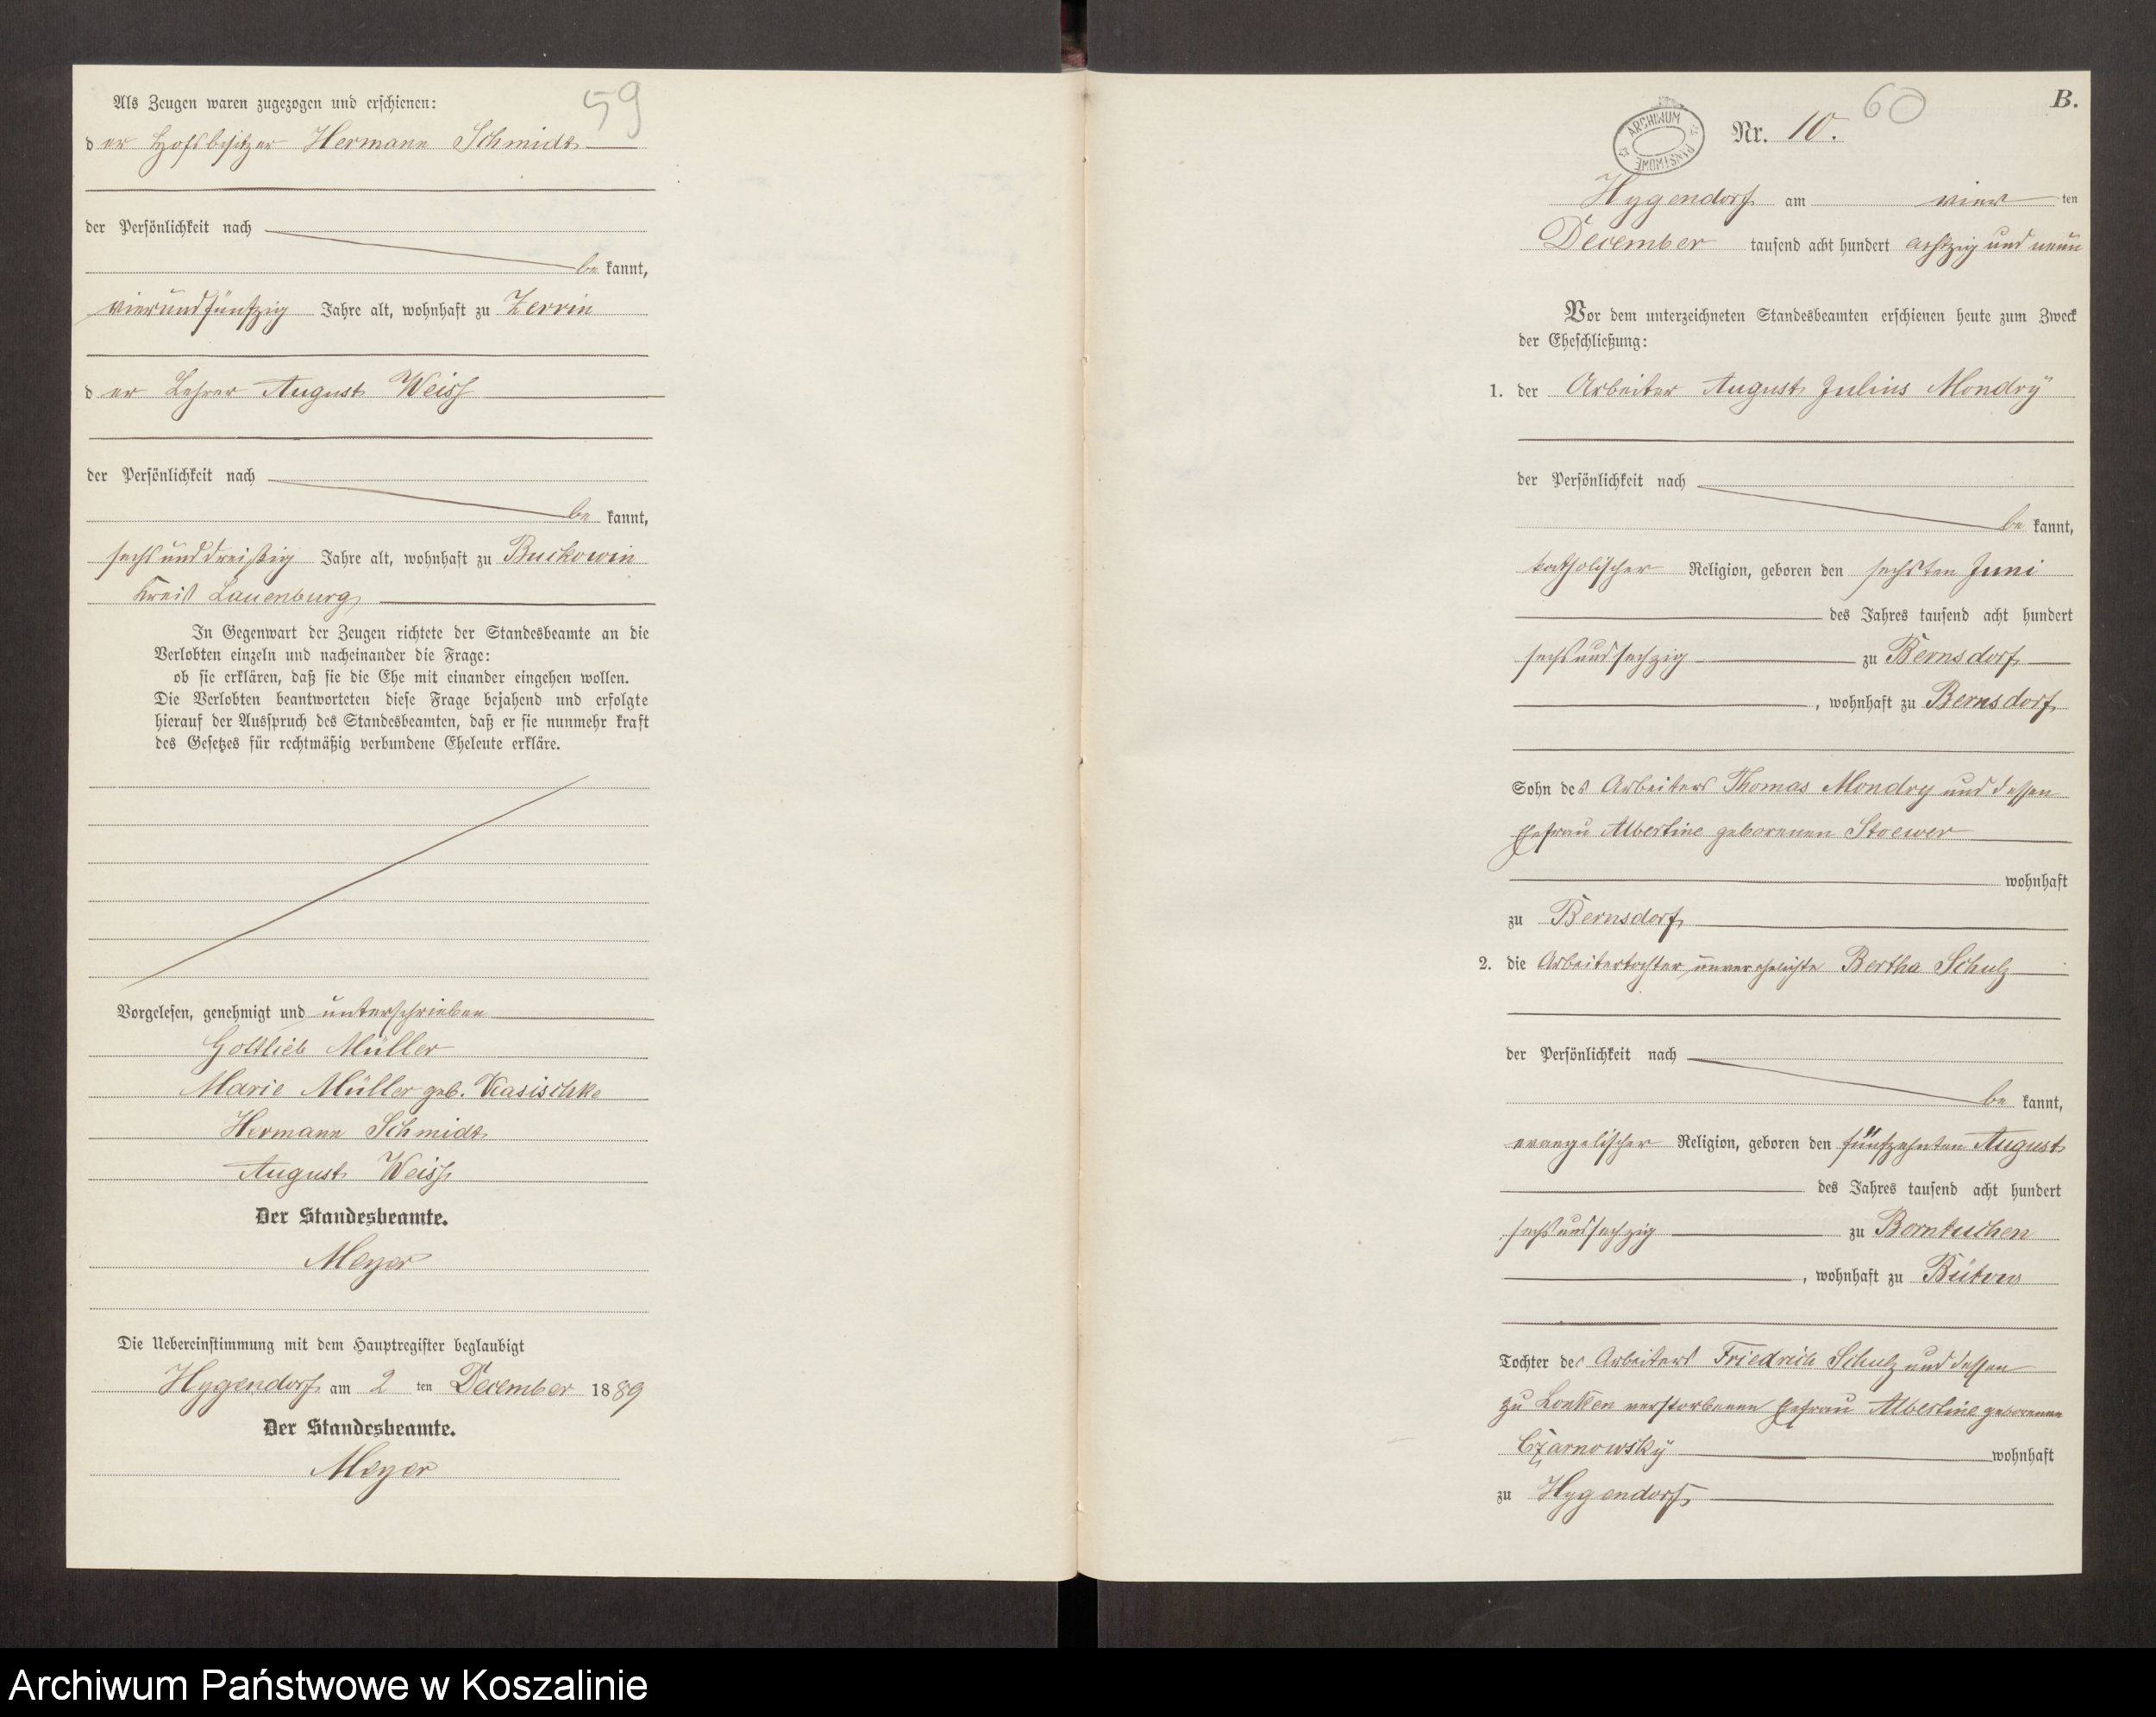 Als Zeugen waren zugezogen und erschienen:
59
der Hofbesitzer Hermann Schmidt
der Persönlichkeit nach
bekannt,
vierundfünfzig Jahre alt, wohnhaft zu Zerrin
der Lehrer August Weiss
der Persönlichkeit nach
bekannt,
sechsunddreißig Jahre alt, wohnhaft zu Buckowin
Kreis Lauenburg
In Gegenwart der Zeugen richtete der Standesbeamte an die
Verlobten einzeln und nacheinander die Frage:
ob sie erklären, daß sie die Ehe mit einander eingehen wollen.
Die Verlobten beantworteten diese Frage bejahend und erfolgte
hierauf der Ausspruch des Standesbeamten, daß er sie nunmehr kraft
des Gesetzes für rechtmäßig verbundene Eheleute erkläre.
Vorgelesen, genehmigt und unterschrieben
Gottlieb Müller
Marie Müller geb. Kasischke
Hermann Schmidt
August Weiss
Der Standesbeamte.
Meyer
Die Uebereinstimmung mit dem Hauptregister beglaubigt
Hygendorf am 2 ten December 1889
Der Standesbeamte.
Meyer
B.
60
ARCHIWUM PAŃSTWOWE
Nr. 10.
Hygendorf am vier ten
December tausend acht hundert achtzig und neun
Vor dem unterzeichneten Standesbeamten erschienen heute zum Zweck
der Eheschließung:
1. der Arbeiter August Julius Mondry
der Persönlichkeit nach
bekannt,
katholischer Religion, geboren den sechsten Juni
des Jahres tausend acht hundert
sechsundsechzig zu Bernsdorf
, wohnhaft zu Bernsdorf
Sohn des Arbeiters Thomas Mondry und dessen
Ehefrau Albertine geborenen Stoewer
wohnhaft
zu Bernsdorf
2. die Arbeitertochter unverehelichte Bertha Schulz
der Persönlichkeit nach
bekannt,
evangelischer Religion, geboren den fünfzehnten August
des Jahres tausend acht hundert
sechsundsechzig zu Borntuchen
, wohnhaft zu Bütow
Tochter des Arbeiters Friedrich Schulz und dessen
zu Lonken verstorbenen Ehefrau Albertine geborenen
Czarnowsky wohnhaft
zu Hygendorf
Archiwum Państwowe w Koszalinie